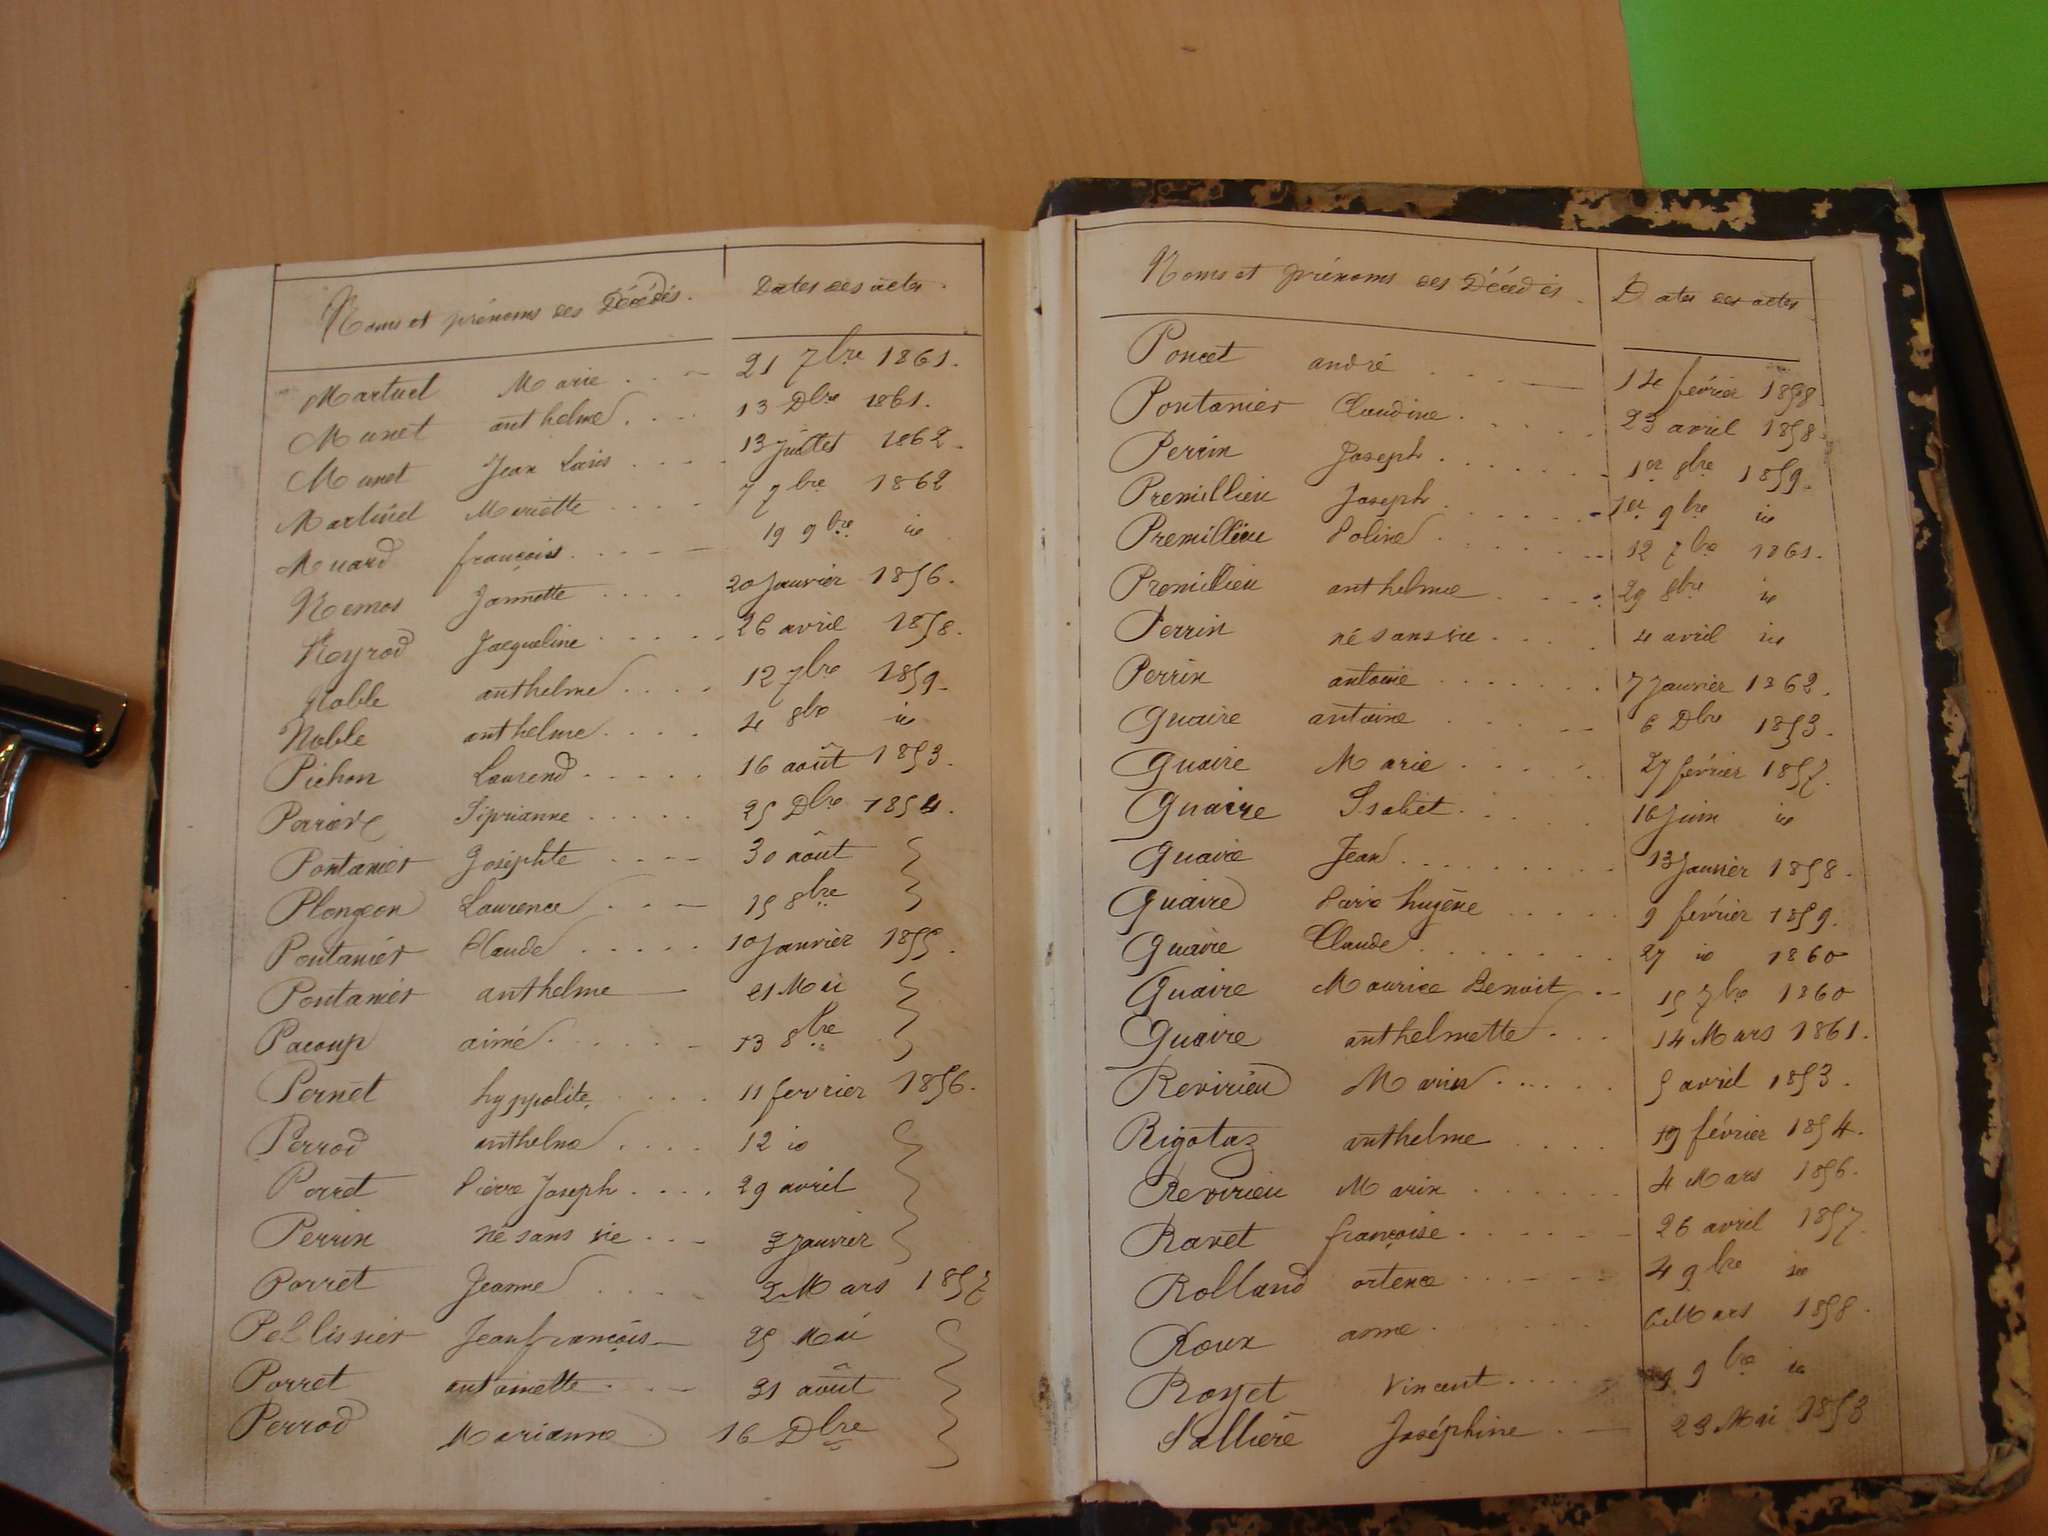 Noms et prénoms des Décédés. Dates des actes.
Martuel Marie 21 7bre 1861.
Munet anthelme 13 Dbre 1861.
Munet Jean Louis 13 juillet 1862.
Martinet Mariette 7 7bre 1862
Muard françois 19 9bre id
Nemos Jannette 20 Janvier 1856.
Neyrod Jacqueline 26 avril 1858.
Noble anthelme 12 7bre 1859.
Noble anthelme 4 8bre id
Pichon Laurend 16 août 1853.
Siprianne 25 Dbre 1854.
Pontanier Joséphte 30 août
Plongeon Laurence 15 8bre
Pontanier Claude 10 Janvier 1855.
Pontanier anthelme 21 Mai
Pacoup aimé 13 8bre
Pernet hyppolite 11 fevrier 1856.
Perrod anthelme 12 id
Porret Pierre Joseph 29 avril
Perrin né sans vie 3 Janvier
Porret Jeanne 2 Mars 1857
Pellissier Jean françois 25 Mai
Porret antoinette 31 août
Perrod Marianne 16 Dbre
Noms et prénoms des Décédés. Dates des actes
Poncet andré 14 février 1858.
Pontanier Claudine. 23 avril 1858.
Perrin Joseph 1er 8bre 1859.
Premillieu Joseph 1er 9bre id
Premillieu Poline 12 7bre 1861.
Premillieu anthelme 29 8bre id
Perrin né sans vie 4 avril id
Perrin antoine 7 Janvier 1862.
Quaire antoine 6 Dbre 1853.
Quaire Marie 27 février 1857.
Quaire Isabet 16 Juin id
Quaire Jean 13 Janvier 1858.
Quaire 9 février 1859.
Quaire Claude 27 id 1860
Quaire Maurice Benoit 15 7bre 1860
Quaire anthelmette 14 Mars 1861.
Revirieu 5 avril 1853.
Rigotaz anthelme 19 février 1854.
Revirieu Marin 4 Mars 1856.
Ravet françoise 26 avril 1857.
Rolland ortence 4 9bre id
Roux anne 6 Mars 1858.
Royet vincent 9 9bre id
Sallière Joséphine 23 Mai 1853